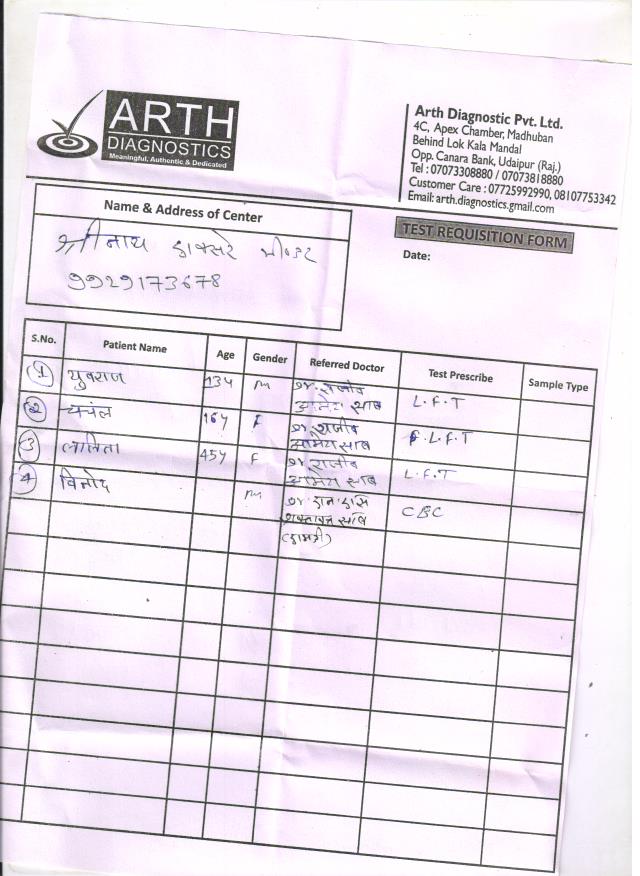 ARTH
DIAGNOSTICS
Meaningful, Authentic & Dedicated
Arth Diagnostic Pvt. Ltd.
4C, Apex Chamber, Madhuban
Behind Lok Kala Mandal
Opp. Canara Bank, Udaipur (Raj.)
Tel : 07073308880 / 07073818880
Customer Care : 07725992990, 08107753342
Email: arth.diagnostics.gmail.com
Name & Address of Center
श्रीनाथ
9929173678
TEST REQUISITION FORM
Date:
S.No. Patient Name Age Gender Referred Doctor Test Prescribe Sample Type
1 युवराज 13Y m Dr. राजीव
साब L.F.T
2 चंचल 16Y F Dr. राजीव
साब L.F.T
3 ललिता 45Y F Dr. राजीव
साब L.F.T
4 विनोद m Dr.
CBC